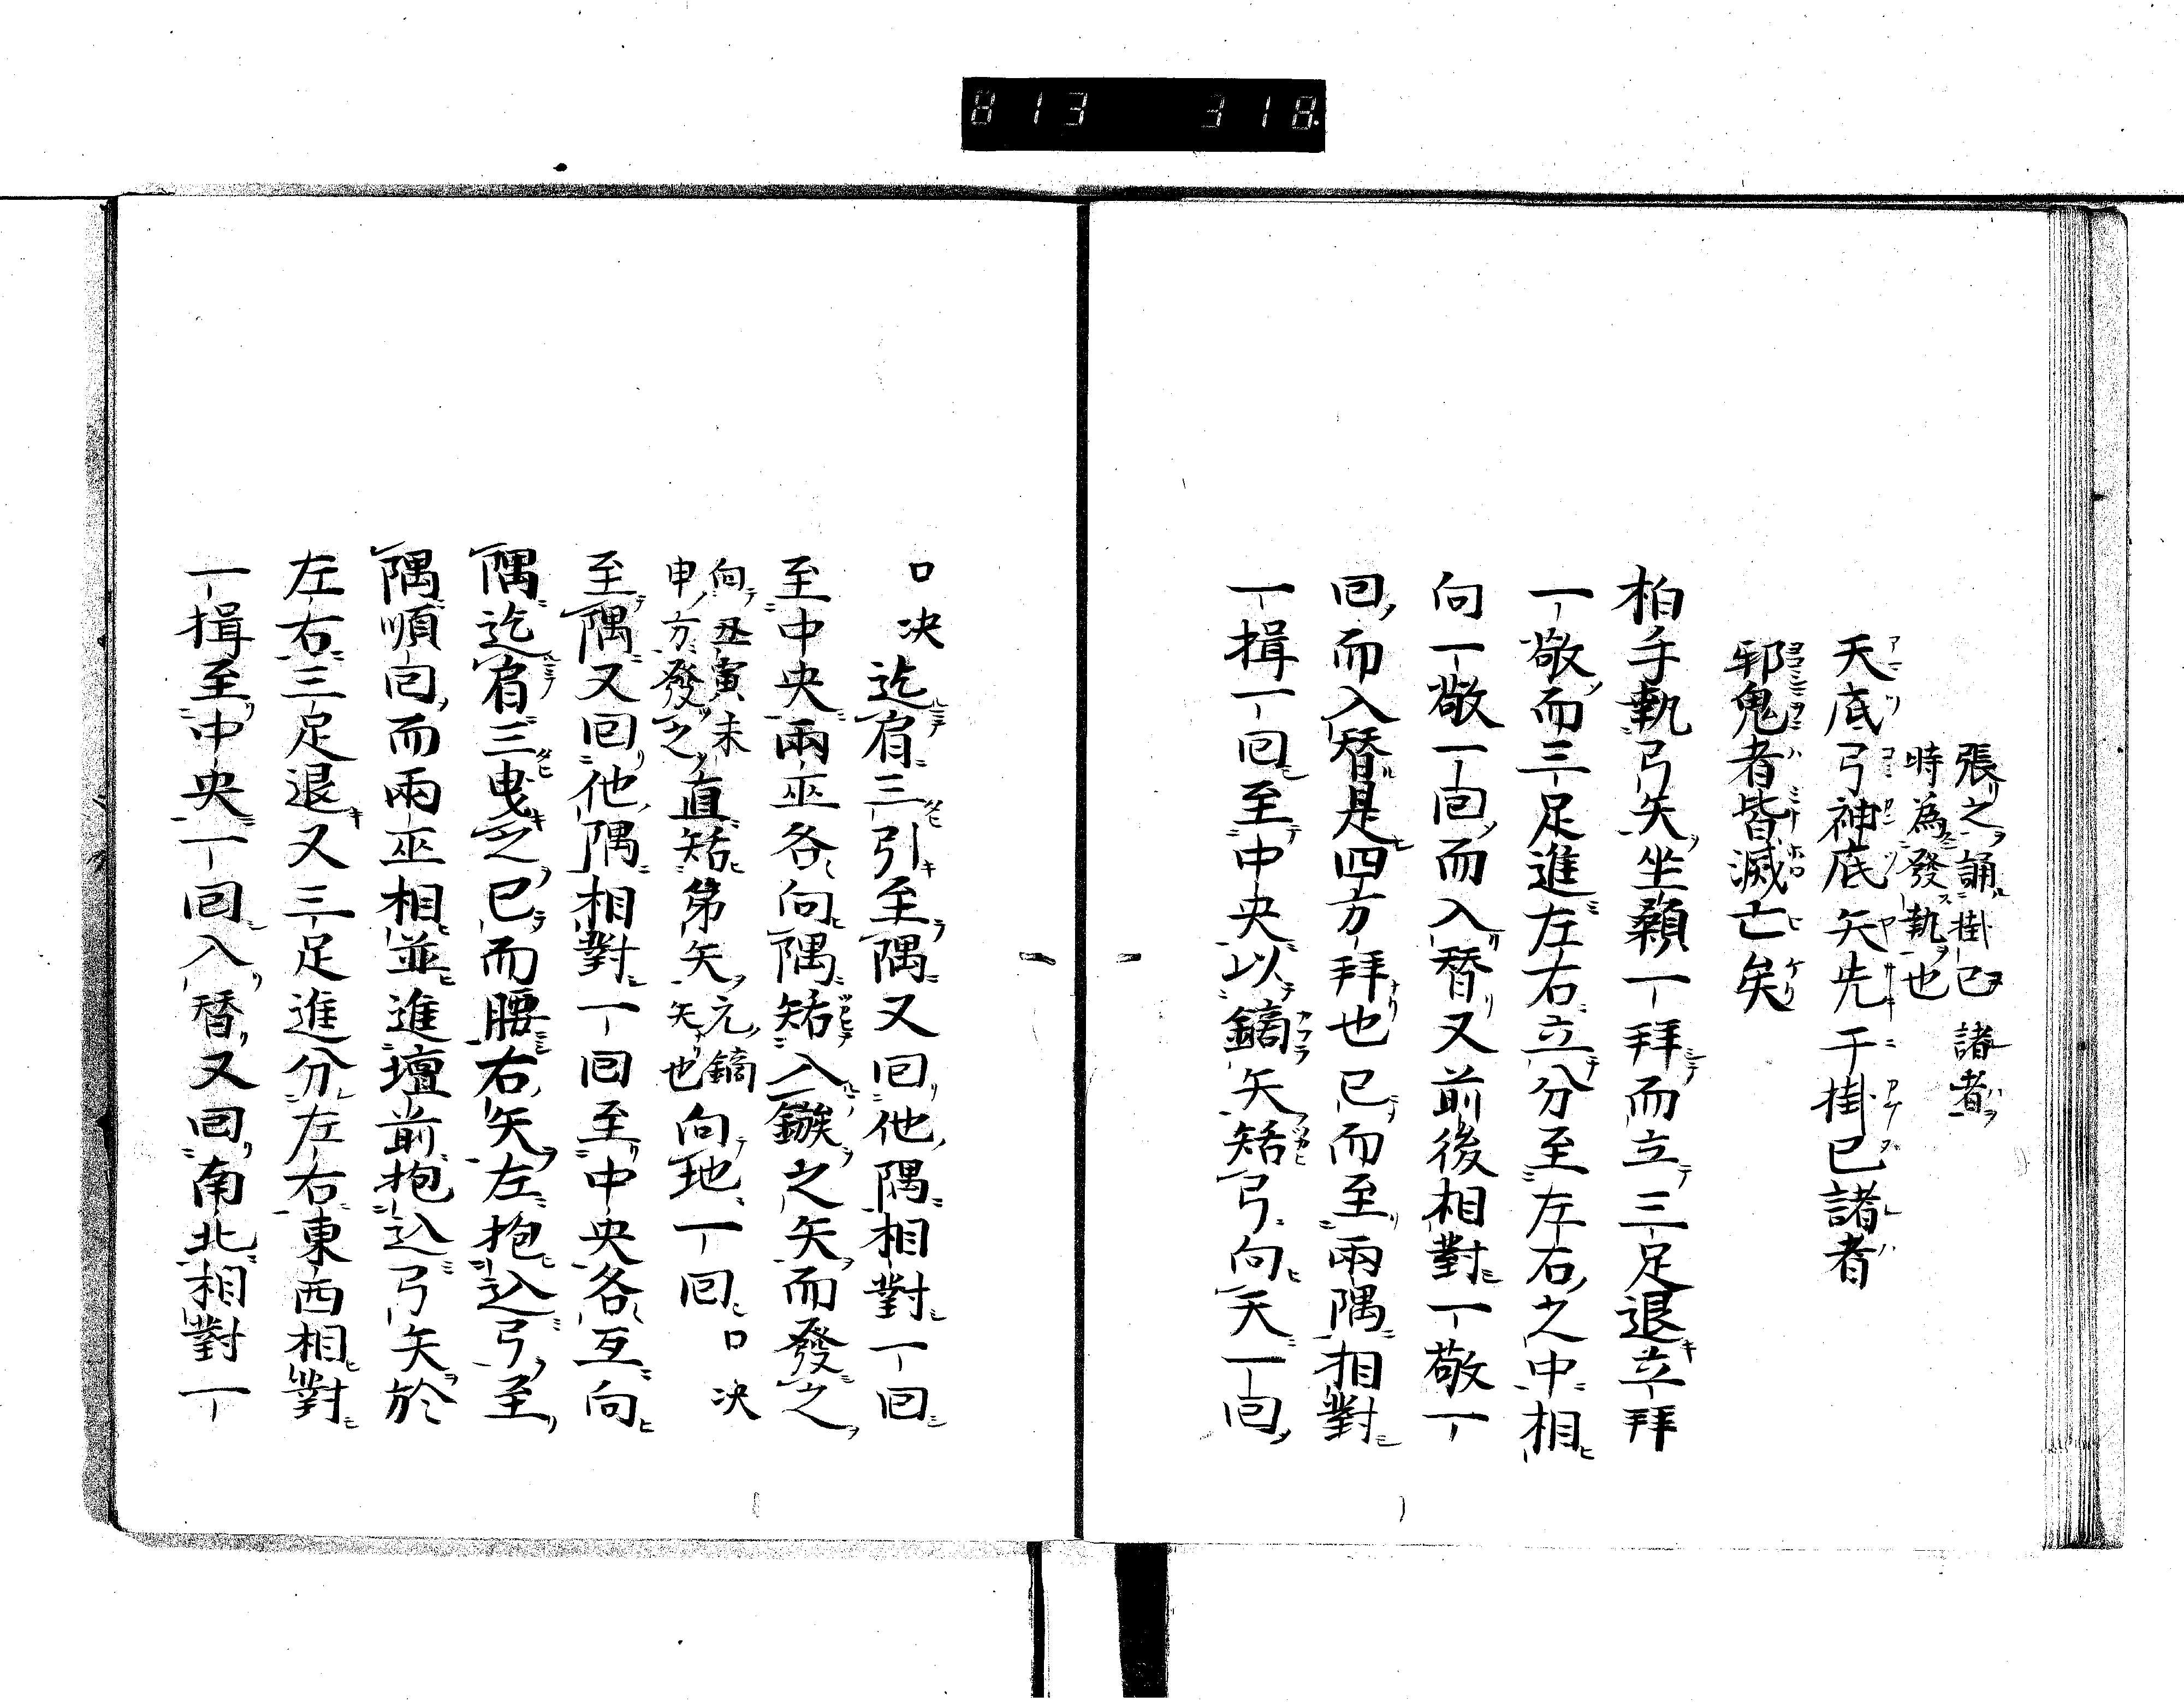 813 318.
張之誦掛已諸者
時為發執也
天底弓神底矢先于掛已諸者
邪鬼者皆滅亡矣
柏手執弓矢坐顙一拜而立三足退立拜
一敬而三足進左右立分至左右之中相
向一敬一回而入替又前後相對一敬一
回而入替是四方拜也已而至兩隅相對
一揖一回至中央以鏑矢𥎿弓向天一回
口决迄肩三引至隅又回他隅相對一回
至中央兩巫各向隅𥎿入鏃之矢而發之
向丑寅未
申方發之直𥎿第矢元鏑
矢也向地一回口决
至隅又回他隅相對一回至中央各互向
隅迄肩三曳之已而腰右矢左抱込弓至
隅順回而兩巫相並進壇前抱込弓矢於
左右三足退又三足進分左右東西相對
一揖至中央一回入替又回南北相對一